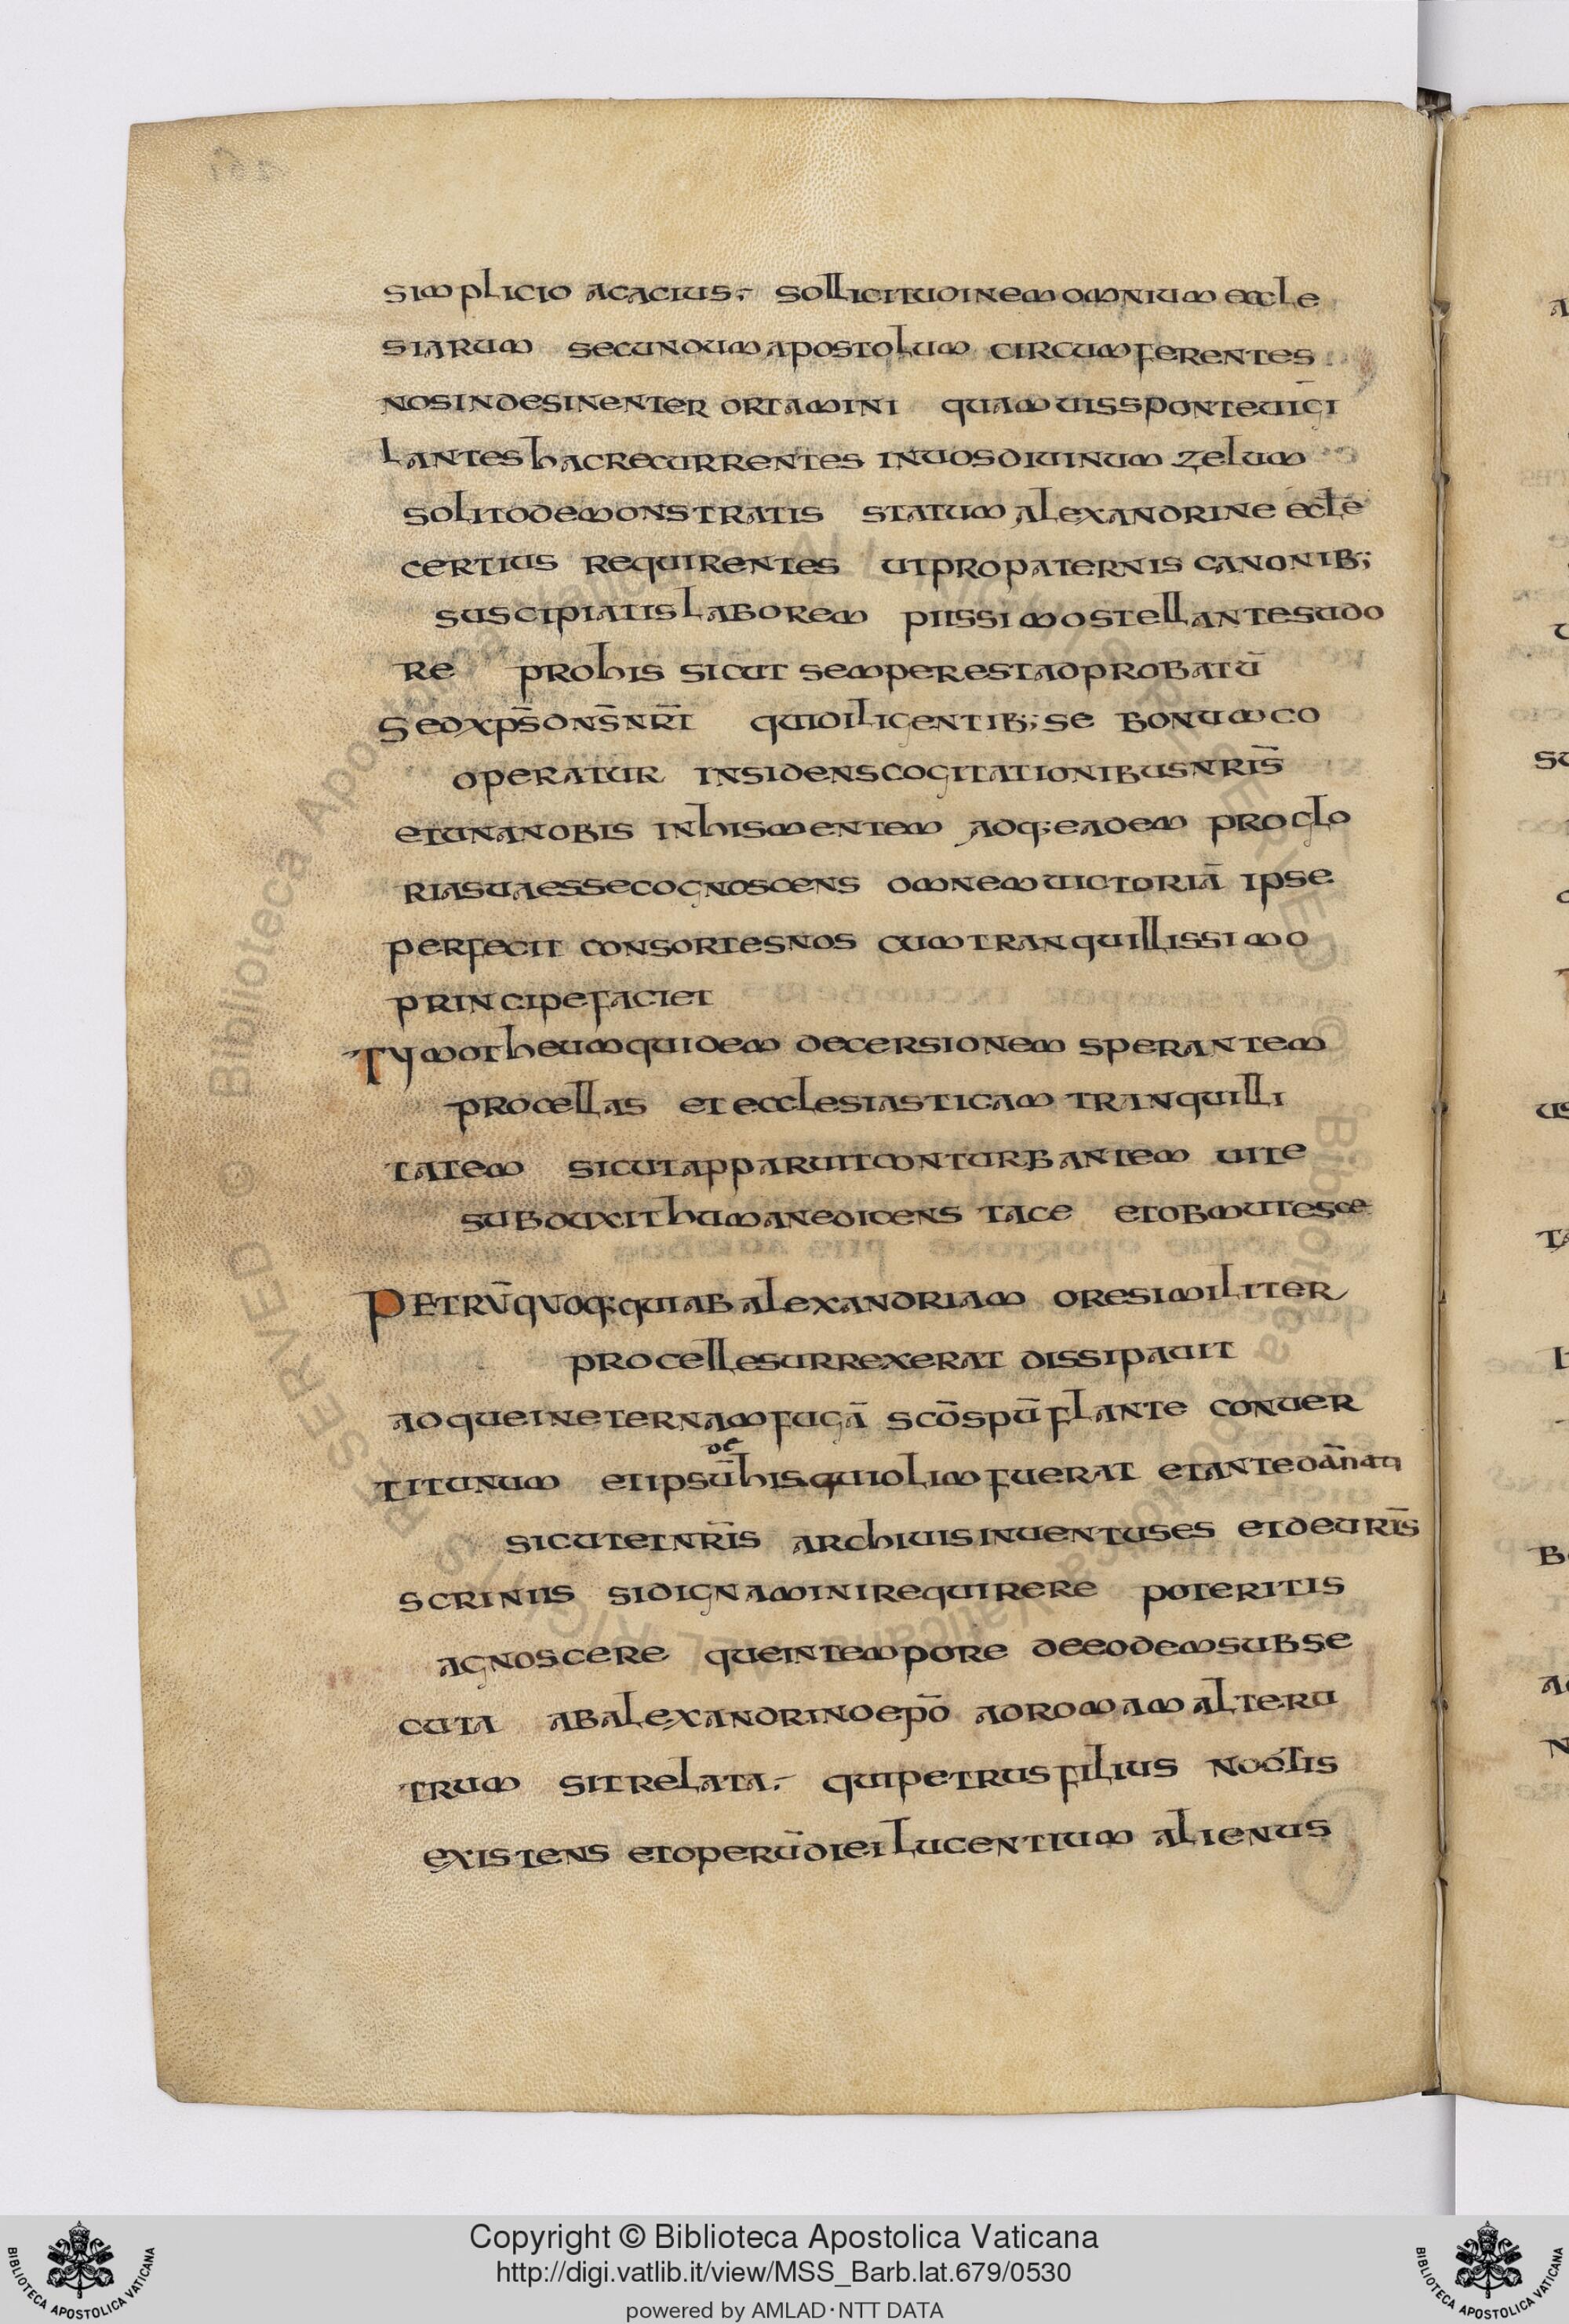 simplicio acacius; sollicitudinem omnium eccle
siarum secundum apostolum circumferentes
nos indesinenter ortamini quamuis sponte uigi
lantes hac recurrentes in uos diuinum zelum
solito demonstratis statum alexandrine ecle
certius requirentes ut pro paternis canonib;
suscipiatis laborem piissimo stellante sudo
re pro his sicut semper est adprobatū
Sed xp̄s dn̄s nr̄i qui diligentib; se bonum co
operatur insidens cogitationibus nr̄is
et una nobis in his mentem adq; eadem pro glo
ria sua esse cognoscens omnem uictoriā ipse
perfecit consortes nos cum tranquillissimo
principe faciet
Tymotheum quidem decersionem sperantem
procellas et ecclesiasticam tranquilli
tatem sicut apparuit conturbantem uite
subduxit humane dicens tace et obmutesce
PETRV̄ QVOQ; qui ab alexandriam ore similiter
procelle surrexerat dissipauit
adque in eternam fugā sc̄o sp̄u flante conuer
tit unum et ipsū de his qui olim fuerat et ante dānati
sicut et in nr̄is archiuis inuentus es et de ur̄is
scriniis si dignamini requirere poteritis
agnoscere que in tempore de eodem subse
cuta ab alexandrino ep̄o ad romam alteru
trum sit relata; qui petrus filius noctis
existens et operū diei lucentium alienus
Copyright © Biblioteca Apostolica Vaticana
http://digi.vatlib.it/view/MSS_Barb.lat.679/0530
powered by AMLAD·NTT DATA
BIBLIOTECA APOSTOLICA VATICANA
BIBLIOTECA APOSTOLICA VATICANA